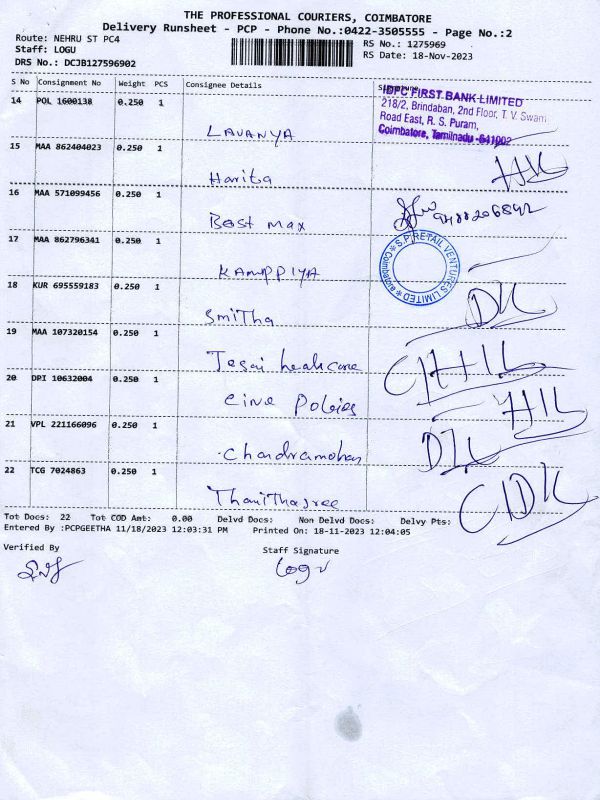 THE PROFESSIONAL COURIERS, COIMBATORE
Delivery Runsheet - PCP - Phone No.:0422-3505555 - Page No.:2
Route: NEHRU ST PC4
RS No.: 1275969
Staff: LOGU
RS Date: 18-Nov-2023
DRS No.: DCJB127596902
S No Consignment No Weight PCS Consignee Details Signature
IDFC FIRST BANK LIMITED
218/2, Brindaban, 2nd Floor, T. V. Swami
Road East, R. S. Puram,
Coimbatore, Tamilnadu -641002
14 POL 1600138 0.250 1
LAVANYA
15 MAA 862404023 0.250 1
Harita
16 MAA 571099456 0.250 1
Best max
17 MAA 862796341 0.250 1
S.P.RETAIL VENTURES LIMITED * Coimbatore *
18 KUR 695559183 0.250 1
Smitha
19 MAA 107320154 0.250 1
20 DPI 10632004 0.250 1
21 VPL 221166096 0.250 1
Chandramohan
22 TCG 7024863 0.250 1
Thanithasree
Tot Docs: 22 Tot COD Amt: 0.00 Delvd Docs: Non Delvd Docs: Delvy Pts:
Entered By :PCPGEETHA 11/18/2023 12:03:31 PM Printed On: 18-11-2023 12:04:05
Verified By Staff Signature
Logu